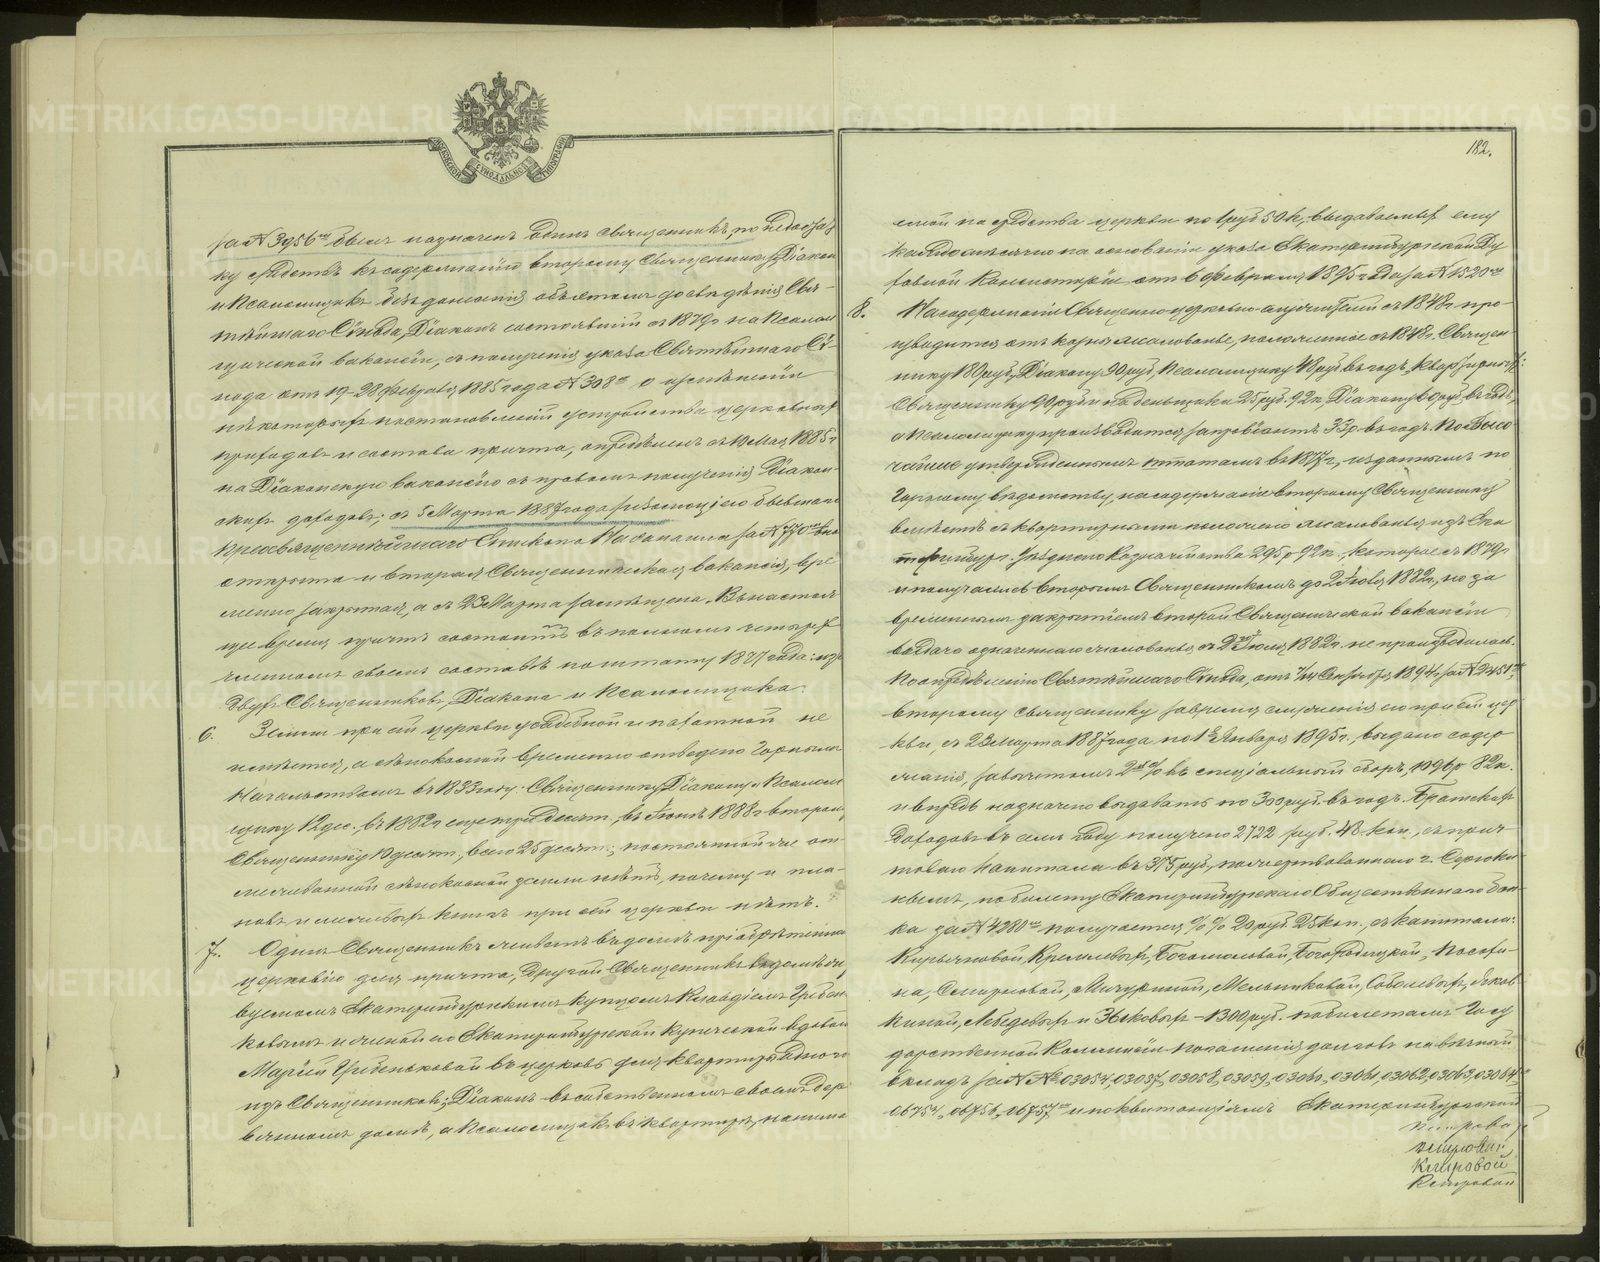 МОСКОВСКОЙ СѴНОДАЛЬНОЙ ТИПОГРАФІИ
за № 3956мъ былъ назначенъ одинъ священникъ, по недостат
ку средствъ къ содержанію второму Священнику, Діакон
и Псаломщикъ
тѣйшаго Сѵнода, Діаконъ состоявшій съ 1879 г. на Псалом
щической вакансіи, съ полученія указа Святѣйшаго Сѵ-
нода отъ 19-28 Февраля 1885 года № 308мъ о измѣненіи
нѣкоторыхъ постановленій устройства церковныхъ
приходовъ и состава причта, опредѣленъ съ Мая 1885 г
на Діаконскую вакансію съ правомъ полученія Діакон-
скихъ доходовъ; съ 5 Марта 1887 года резолюціею бывшаго
Преосвященнѣйшаго Епископа Наѳанаила за № 770мъ вно
открыта и вторая Священническая вакансія, вре
менно закрытая, а съ 23 Марта замѣщена. Въ настоя
щее время причтъ состоитъ въ полномъ четырех
членномъ своемъ составѣ по штату 1877 года: изъ
двухъ Священниковъ, Діакона и Псаломщика.
6. Земли при сей церкви усадебной и пахатной не
имѣется, а сѣнокосной временно отведено Горнымъ
Начальствомъ въ 1833 году: Священнику, Діакону и Псалом
щику 12 дес., въ 1882 г. еще три десят., въ Іюнѣ 1888 г. второму
Священнику 10 десят., всего 25 десят.; постоянной же от
межеванной сѣнокосной земли нѣтъ, почему и пла-
новъ и межевыхъ книгъ при сей церкви нѣтъ.
7. Одинъ Священникъ живетъ въ домѣ пріобрѣтенном
церковію для причта, другой Священникъ въ домѣ
Екатеринбургскимъ купцомъ Клавдіемъ Гребен
ковымъ и женой его Екатеринбургской купеческой вдовой
Маріей Гребеньковой въ церковь для квартиры одного
изъ Священниковъ; Діаконъ въ собственномъ своемъ дере
вянномъ домѣ, а Псаломщикъ въ квартирѣ, нанима
182.
емой на средства церкви по 1 руб. 50 к., выдаваемыхъ ему
каждомѣсячно на основаніи указа Екатеринбургской Ду
ховной Консисторіи отъ 6 Февраля 1895 года за № 1520мъ
8. На содержаніи Священно-церковно-служителей съ 1848 г. про
изводится отъ казны жалованье, положенное съ 1848 г. Священ
нику 180 руб., Діакону 90 руб., Псаломщику 48 руб. въ годъ, квартирныхъ:
Священнику 90 руб. и на деньщика 25 руб. 92 к., Діакону 60 руб. въ годъ,
а Псаломщику производится за провіантъ 33 р. въ годъ. По Высо
чайше утвержденнымъ штатамъ въ 1877 г., изданнымъ по
Горному вѣдомству, на содержаніе второму Священнику
вмѣстѣ съ квартирными положено жалованья изъ Ека
теринбург. Уѣзднаго Казначейства 295 р. 92 к., которое съ 1879 г
и получалось вторымъ Священникомъ до 2 Іюля 1882 г., но за
временнымъ закрытіемъ второй Священнической вакансіи
выдача означеннаго жалованья съ 2го Іюля 1882 г. не производилась.
По опредѣленію Святѣйшаго Сѵнода, отъ 7/14 Сентября 1894 г. за № 2451мъ
второму священнику за время служенія его при сей цер
кви, съ 23 Марта 1887 года по 1е Января 1895 г., выдано содер
жанія, за вычетомъ 2% въ спеціальный сборъ, 1096 р 82 к.
и впредь назначено выдавать по 300 руб. въ годъ. Братскихъ
доходовъ въ семъ году получено 2722 руб. 48 коп., съ прич
товаго капитала въ 375 руб., пожертвованнаго г. Сороки
нымъ, по билету Екатеринбургскаго Общественнаго бан
ка за № 4280мъ получается %% 20 руб. 25 коп., съ капитала:
Кирьяновой, Кремлевыхъ, Богомоловой, Богородицкой,
на, Смирновой, Мичуриной, Мельниковой, Соболевыхъ,
киной, Лебедевыхъ и Зыковыхъ - 1300 руб. по билетамъ Госу
дарственной Коммиссіи погашенія долговъ на вѣчный
вкладъ за №№ 03054, 03057, 03058, 03059, 03060, 03061, 03062, 03063, 03064,
06754, 06756, 06757мъ и по квитанціямъ Екатеринбургской